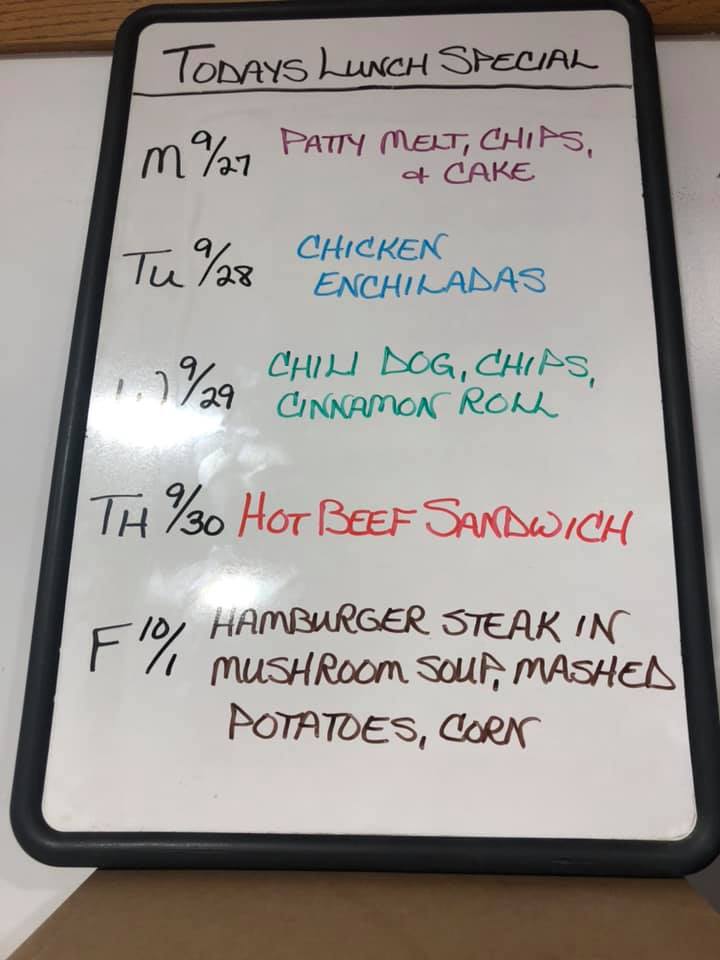 TODAYS LUNCH SPECIAL
M 9/27 PATTY MELT, CHIPS,
& CAKE
Tu 9/28 CHICKEN
ENCHILADAS
W 9/29 CHILI DOG, CHIPS,
CINNAMON ROLL
TH 9/30 HOT BEEF SANDWICH
F 10/1 HAMBURGER STEAK IN
MUSHROOM SOUP, MASHED
POTATOES, CORN